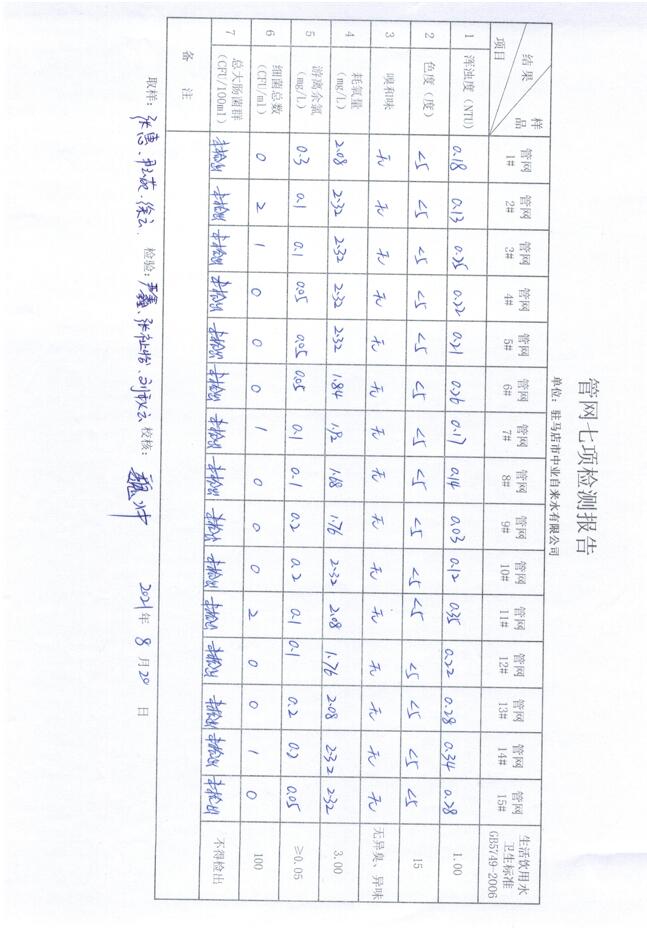 管网七项检测报告
单位：驻马店市中业自来水有限公司
样品 结果 项目 管网1# 管网2# 管网3# 管网4# 管网5# 管网6# 管网7# 管网8# 管网9# 管网10# 管网11# 管网12# 管网13# 管网14# 管网15# 生活饮用水卫生标准GB5749-2006
1 浑浊度（NTU） 0.18 0.13 0.25 0.22 0.21 0.26 0.17 0.14 0.03 0.12 0.35 0.22 0.28 0.34 0.28 1.00
2 色度（度） <5 <5 <5 <5 <5 <5 <5 <5 <5 <5 <5 <5 <5 <5 <5 15
3 嗅和味 无 无 无 无 无 无 无 无 无 无 无 无 无 无 无 无异臭、异味
4 耗氧量（mg/L） 2.08 2.32 2.32 2.32 2.32 1.84 1.92 1.68 1.76 2.32 2.08 1.76 2.08 2.32 2.32 3.00
5 游离余氯（mg/L） 0.3 0.1 0.1 0.05 0.05 0.05 0.1 0.1 0.2 0.2 0.1 0.1 0.2 0.2 0.05 ≥0.05
6 细菌总数（CFU/ml） 0 2 1 0 0 0 1 0 0 0 2 0 0 1 0 100
7 总大肠菌群（CFU/100ml） 未检出 未检出 未检出 未检出 未检出 未检出 未检出 未检出 未检出 未检出 未检出 未检出 未检出 未检出 未检出 不得检出
备 注
取样： 检验： 校核： 2021年 8 月 20 日